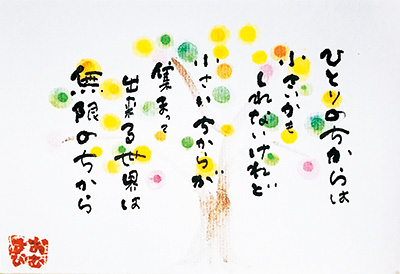 ひとりのちからは
小さいかも
しれないけれど
小さいちからが
集まって
出来る世界は
無限のちから
おむすび